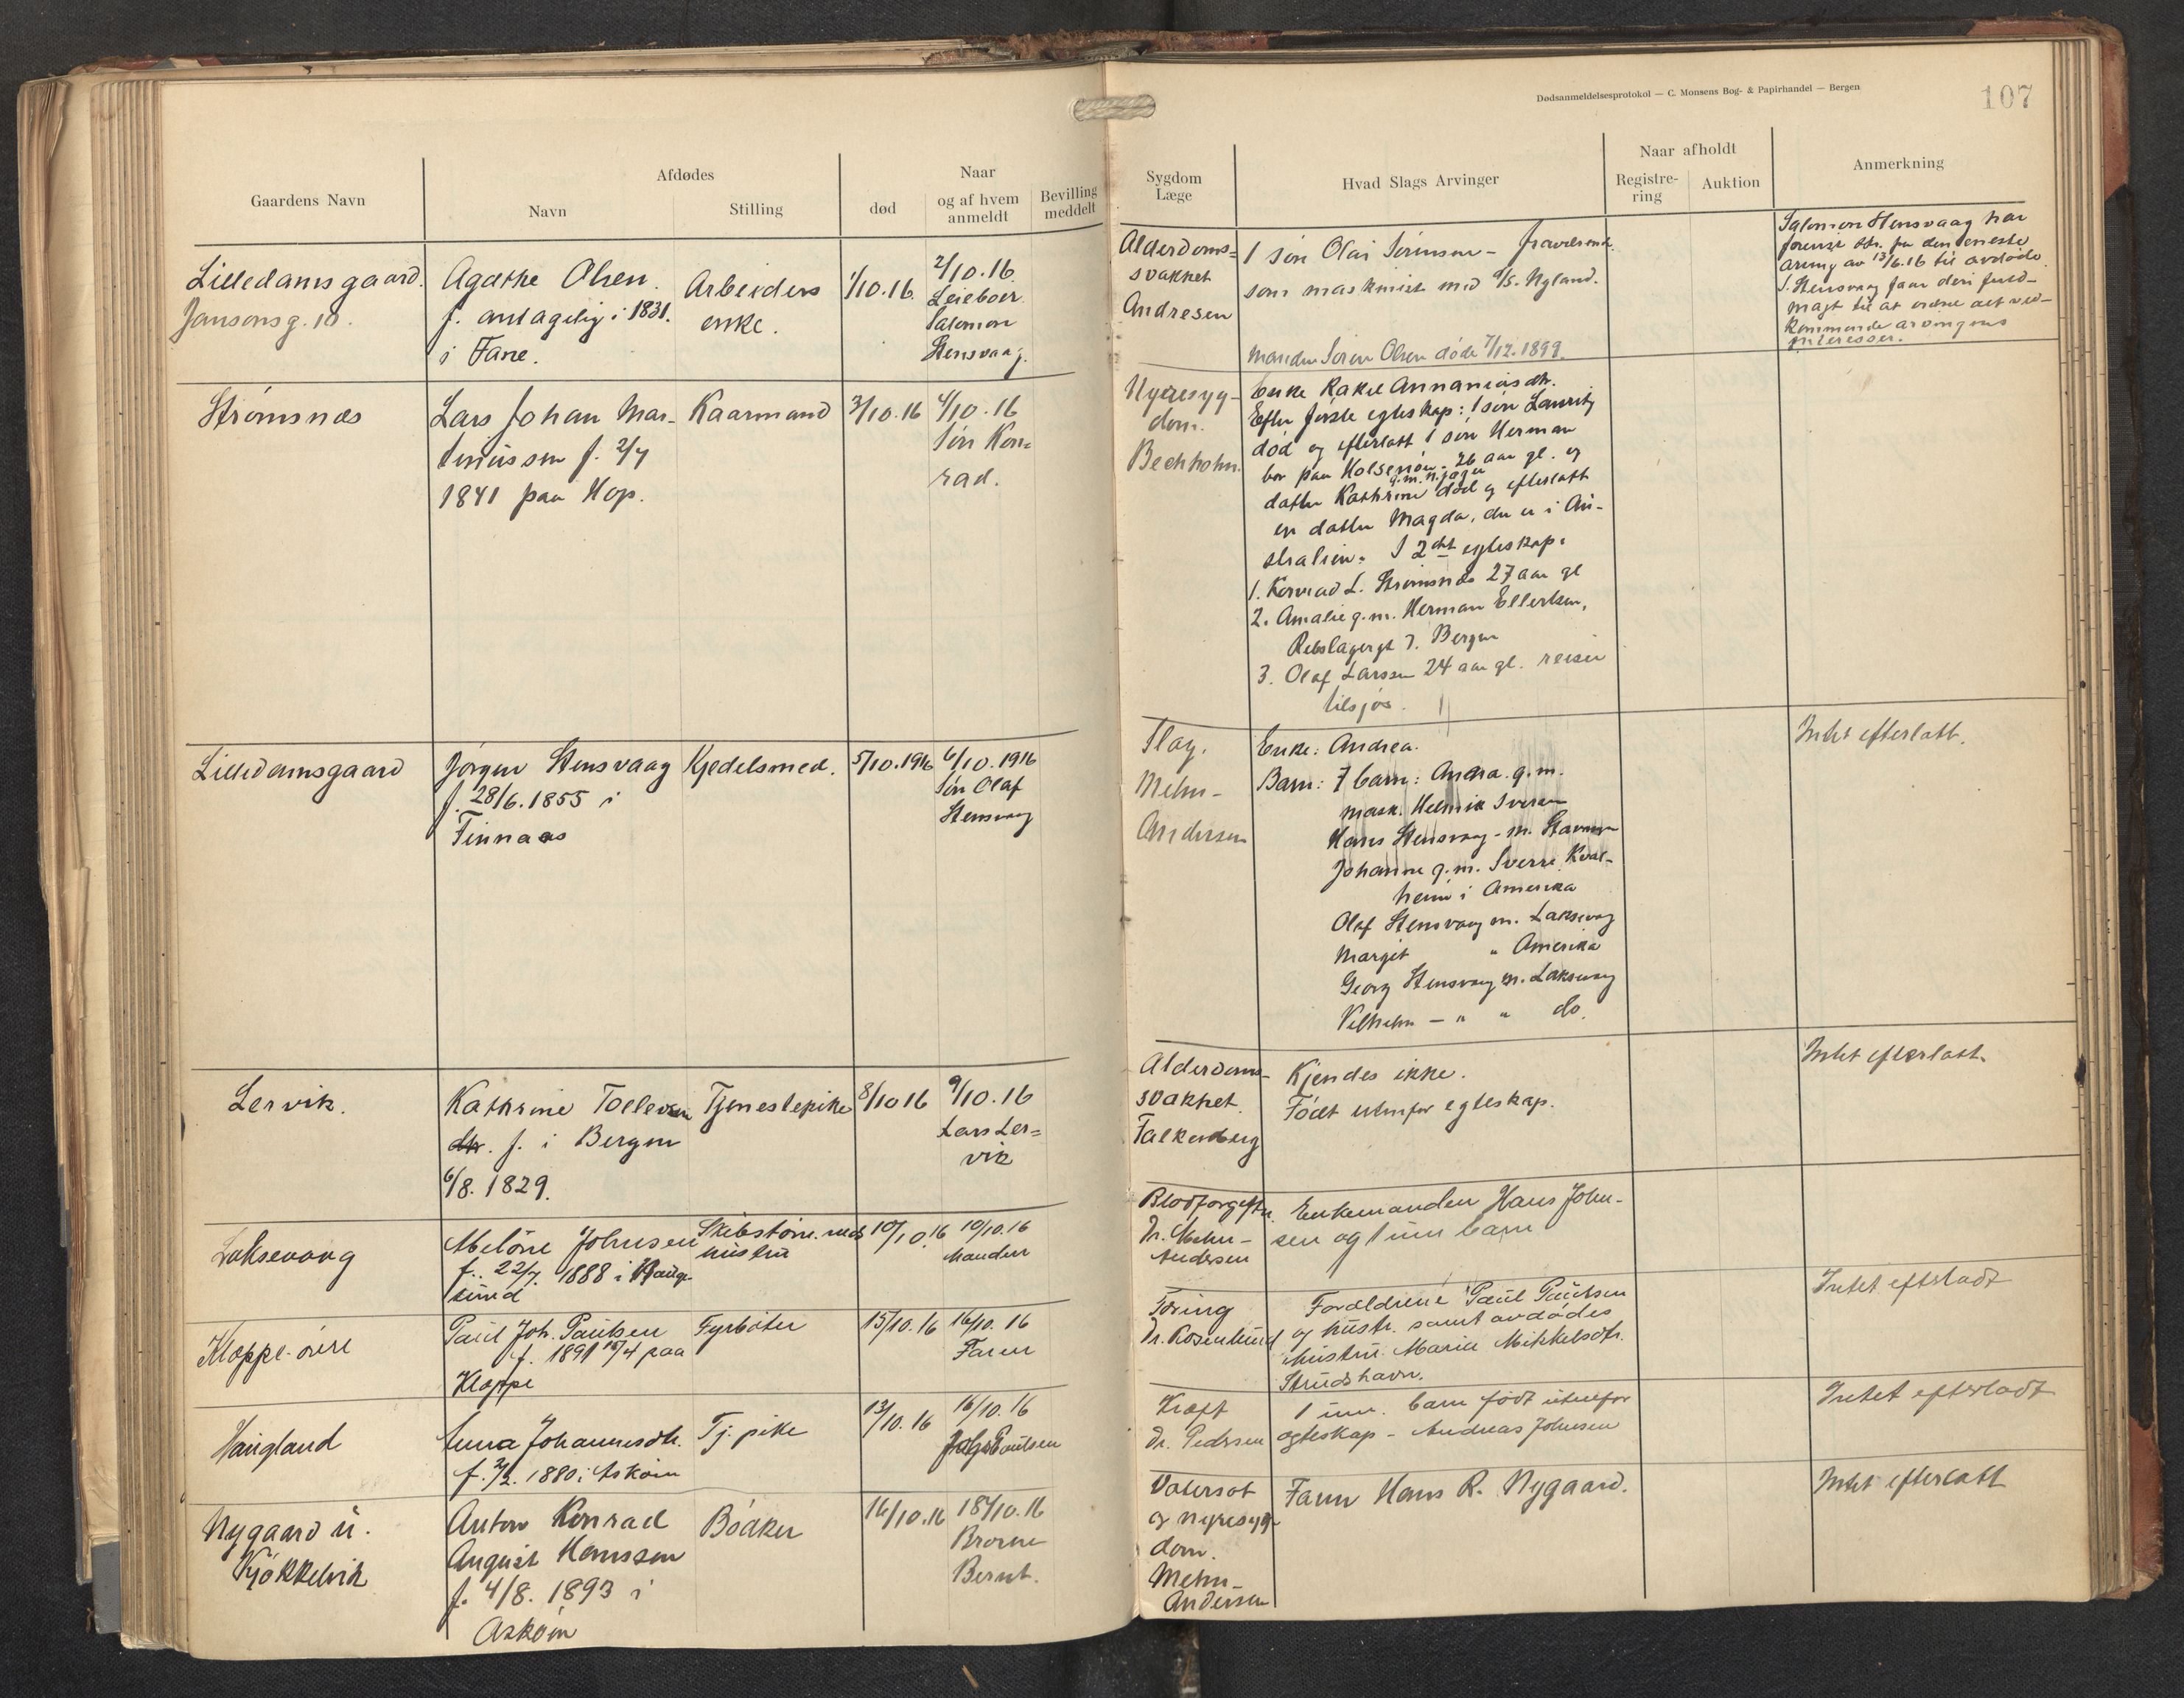 Dødsanmeldelsesprotokol — C. Monsens Bog- & Papirhandel — Bergen
107
Gaardens Navn
Afdødes
Navn
Stilling
Naar
død
og af hvem
anmeldt
Bevilling
meddelt
Sygdom
Læge
Hvad Slags Arvinger
Naar afholdt
Registre-
ring
Auktion
Anmerkning
Lilledamsgaard.
Jansonsg. 10.
Agathe Olsen.
f. antagelig i 1831.
i Fane.
Arbeiders
enke.
1/10.16.
2/10.16.
Leieboer
Salomon
Stensvaag.
Alderdoms-
svakhet
Andresen
1 søn Olai Sørensen - fraværende
som maskinist med D/S. Nyland.
Manden Søren Olsen døde 7/12.1899.
Salomon Stensvaag har
forevist skr. fra den eneste
arving av 13/6.16 til avdøde.
S. Stensvaag faar deri fuld-
magt til at ordne alt ved-
kommende arvingens
interesser.
Strømsnæs
Lars Johan Mar-
tinussen f. 2/7
1841 paa Hop.
Kaarmand
3/10.16
4/10.16
Søn Kon-
rad.
Nyresyg-
dom.
Bechholm.
Enke Rakel Annaniasdtr.
Efter første egteskap: 1 søn Lauritz
død og efterlatt 1 søn Herman
bor paa Holsenøen. 26 aar gl. og
datter Kathrine død og efterlatt
en datter Magda, der er i Au-
stralien. I 2det egteskap:
1. Konrad L. Strømsnæs 27 aar gl
2. Amalie g.m. Herman Ellertsen,
Rebslagergt 7. Bergen
3. Olaf Larssen 24 aar gl. reiser
tilsjøs.
Lilledamsgaard
Jørgen Stensvaag
f. 28/6.1855 i
Finnaas
Kjedelsmed.
5/10.1916
6/10.1916
Søn Olaf
Stensvaag
Slag.
Mehn-
Andersen
Enke: Andrea.
Barn: 7 barn: Anna g.m.
mask. Helmik Iversen
Hans Stensvaag - m. Stavanger
Johanne g.m. Sverre Kval-
heim i Amerika
Olaf Stensvaag m. Laksevaag
Margit " Amerika
Georg Stensvaag m. Laksevaag
Vilhelm — " " do.
Intet efterlatt.
Lervik.
Kathrine Tollevsen
dtr. f. i Bergen
6/8.1829.
Tjenestepike
8/10 16
9/10.16
Lars Ler-
vik
Alderdoms-
svakhet.
Falkenberg
Kjendes ikke.
Født utenfor egteskap.
Intet efterlatt.
Laksevaag
Meløne Johnsen
f. 22/7. 1888 i Hauge-
sund
Skibstøm. meds
hustru
10/10.16
10/10.16
Manden
Blodforgiftn.
Dr. Mehn-
Andersen
Enkemanden Hans John-
sen og 1 um barn
Kloppe-øvre
Paul Joh. Paulsen
f. 1891 18/4 paa
Kloppe
Fyrbøter
15/10.16
16/10.16
Faren
Tæring
Dr. Rosenlund
Forældrene Paul Paulsen
og hustr. samt avdødes
hustru Maria Mikkelsdtr.
Strudshavn.
Intet efterladt
Haugland
Anna Johannesdtr.
f. 2/2. 1880 i Askøen
Tj. pike
13/10.16
16/10.16
Johs Paulsen
Kræft
Dr. Pedersen
1 um. barn født utenfor
egteskap - Andreas Johnsen
Intet efterladt
Nygaard u.
Kjøkkelvik
Anton Konrad
August Hanssen
f. 4/8.1893 i
Askøen
Bødker
16/10.16
18/10.16
Broren
Bernt.
Vatersot
og nyresyg-
dom.
Mehn-
Andersen
Faren Hans R. Nygaard.
Intet efterlatt